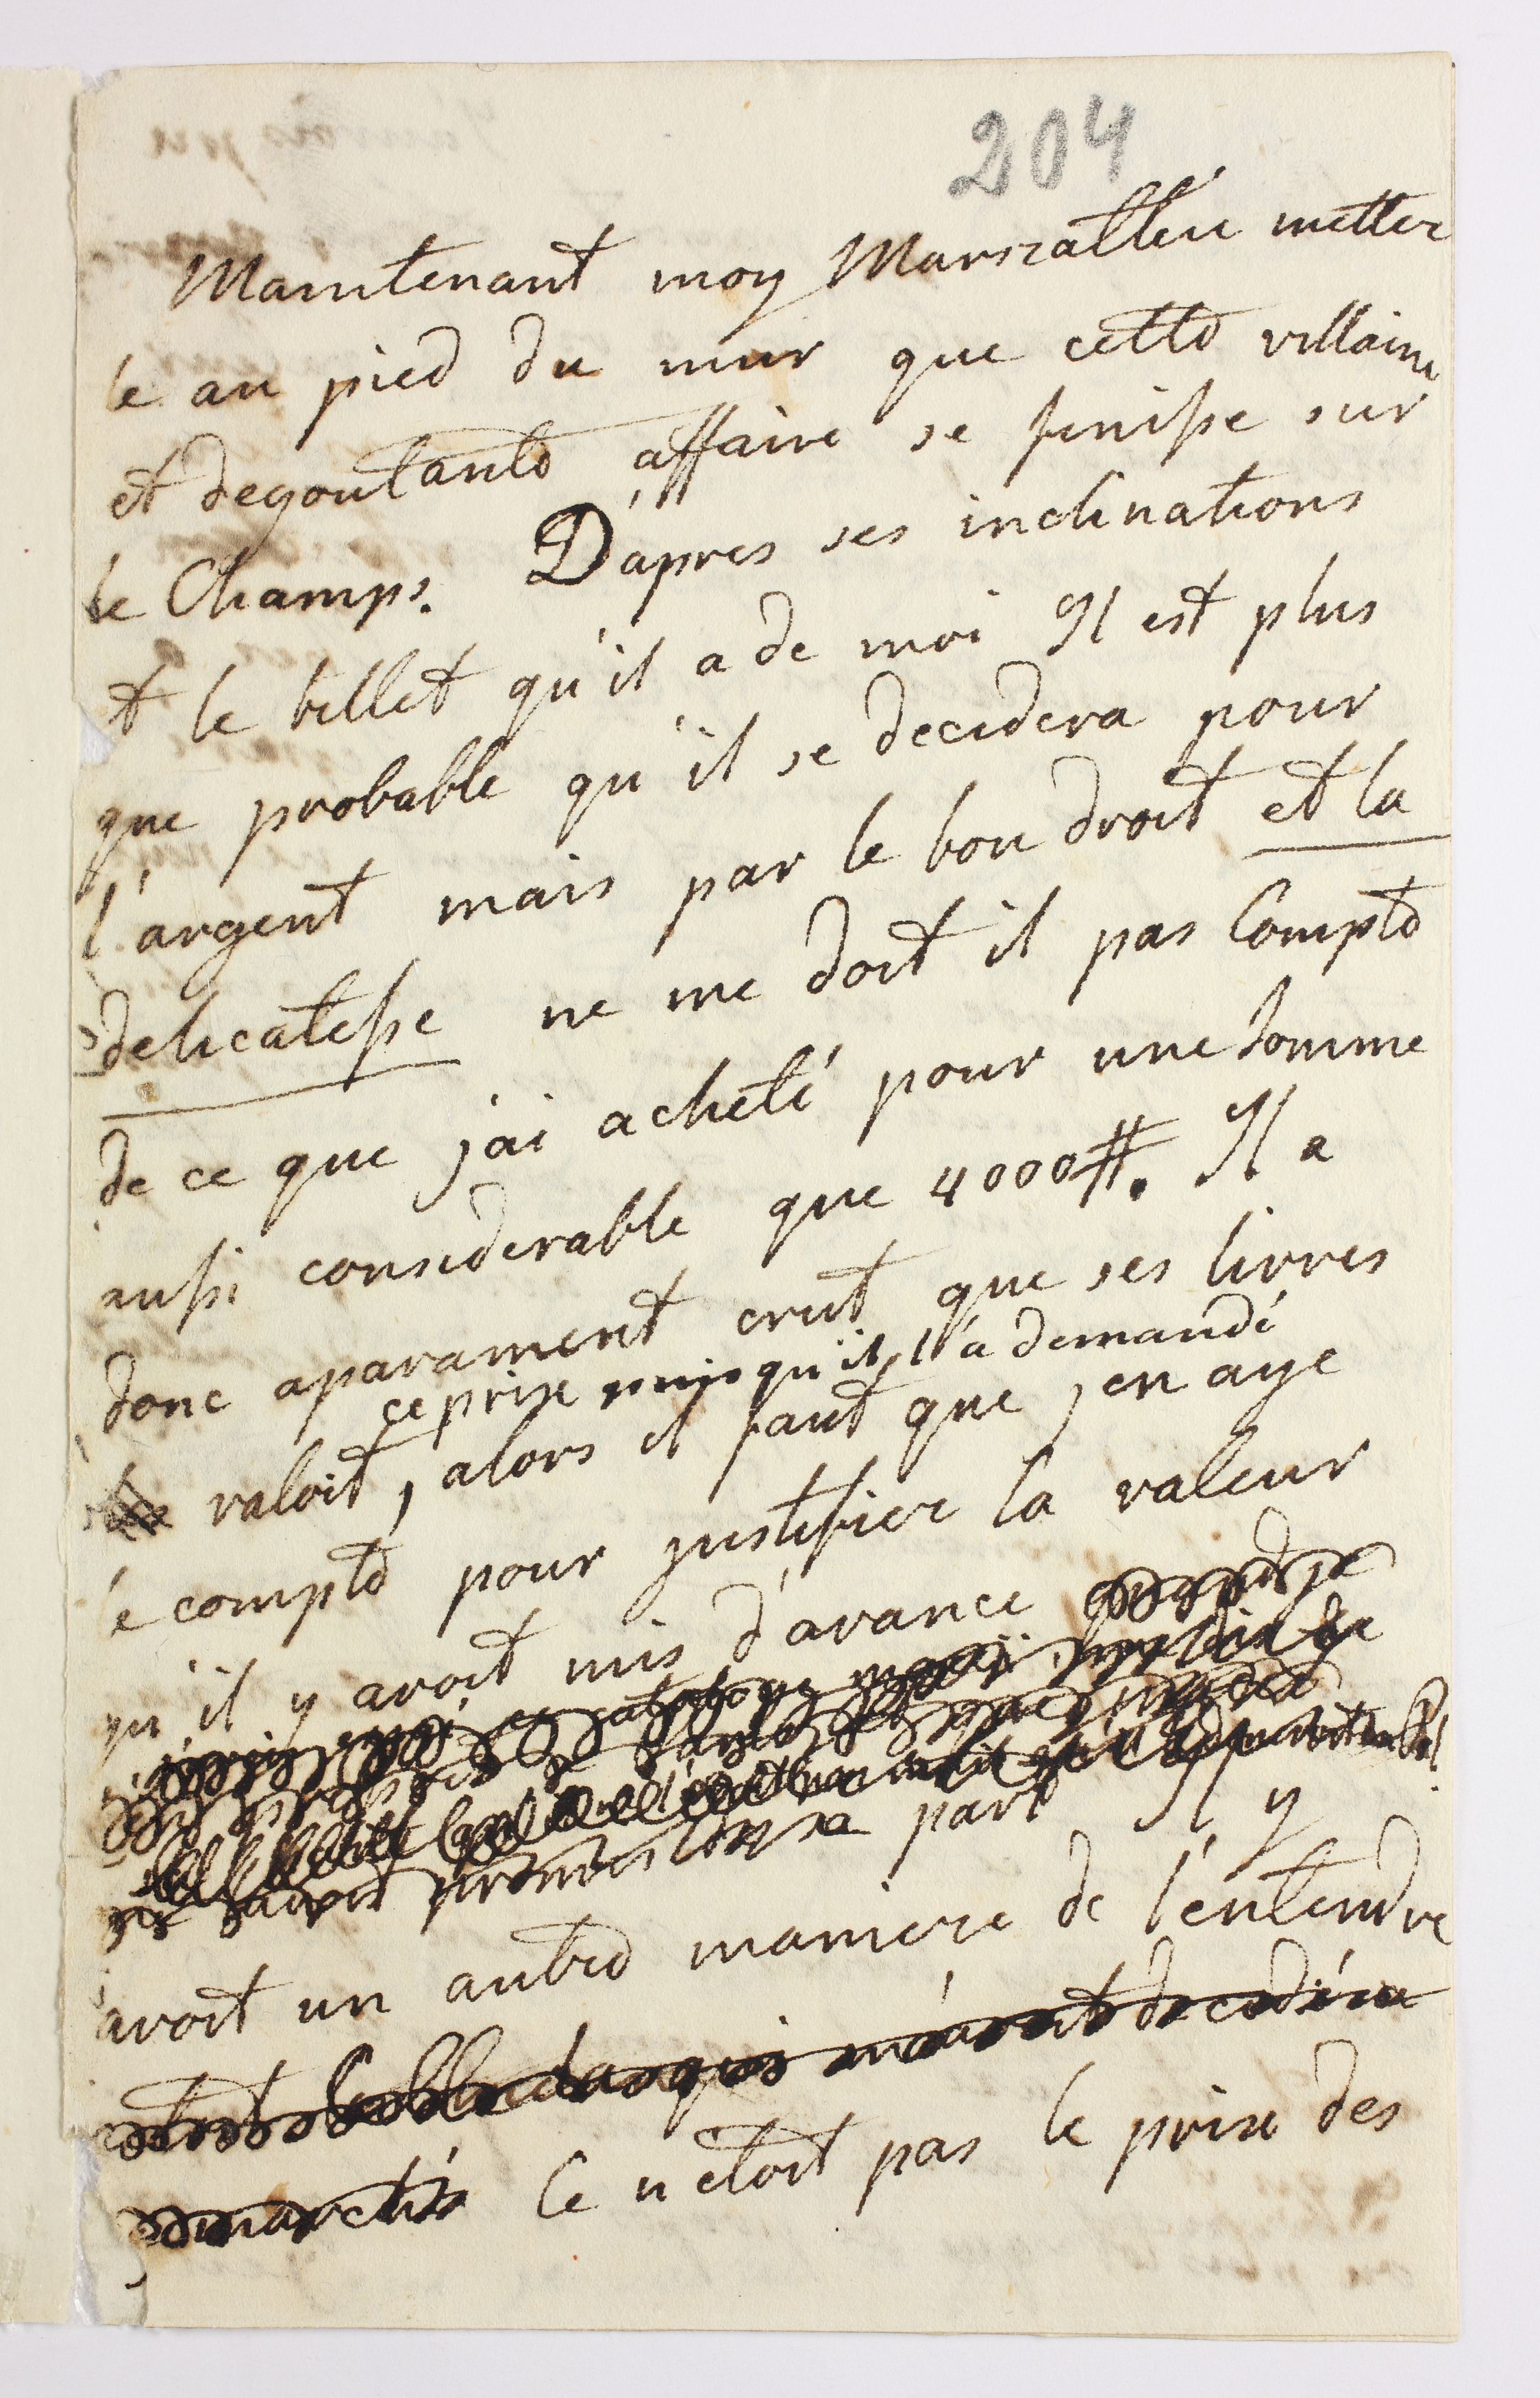 204
Maintenant moy Marszalleu mettez
le au pied du mur que cette villaine
et degoutante affaire se finisse sur
le Champs. D'apres ses inclinations
et le billet qu'il a de moi Il est plus
que probable qu'il se decidera pour
l'argent mais par le bon droit et la
delicatesse ne me doit il pas Compte
de ce que j'ai acheté pour une somme
aussi considerable que 4000#. Il a
donc aparament crut que ses livres
ce prix puisqu'il l'a demandé
valoit, alors il faut que j'en aye
le compte pour justifier la valeur
qu'il y avoit mis d'avance
sa part Il y
avoit un autre maniere de l'entendre
marchés Ce n'etoit pas le prix des